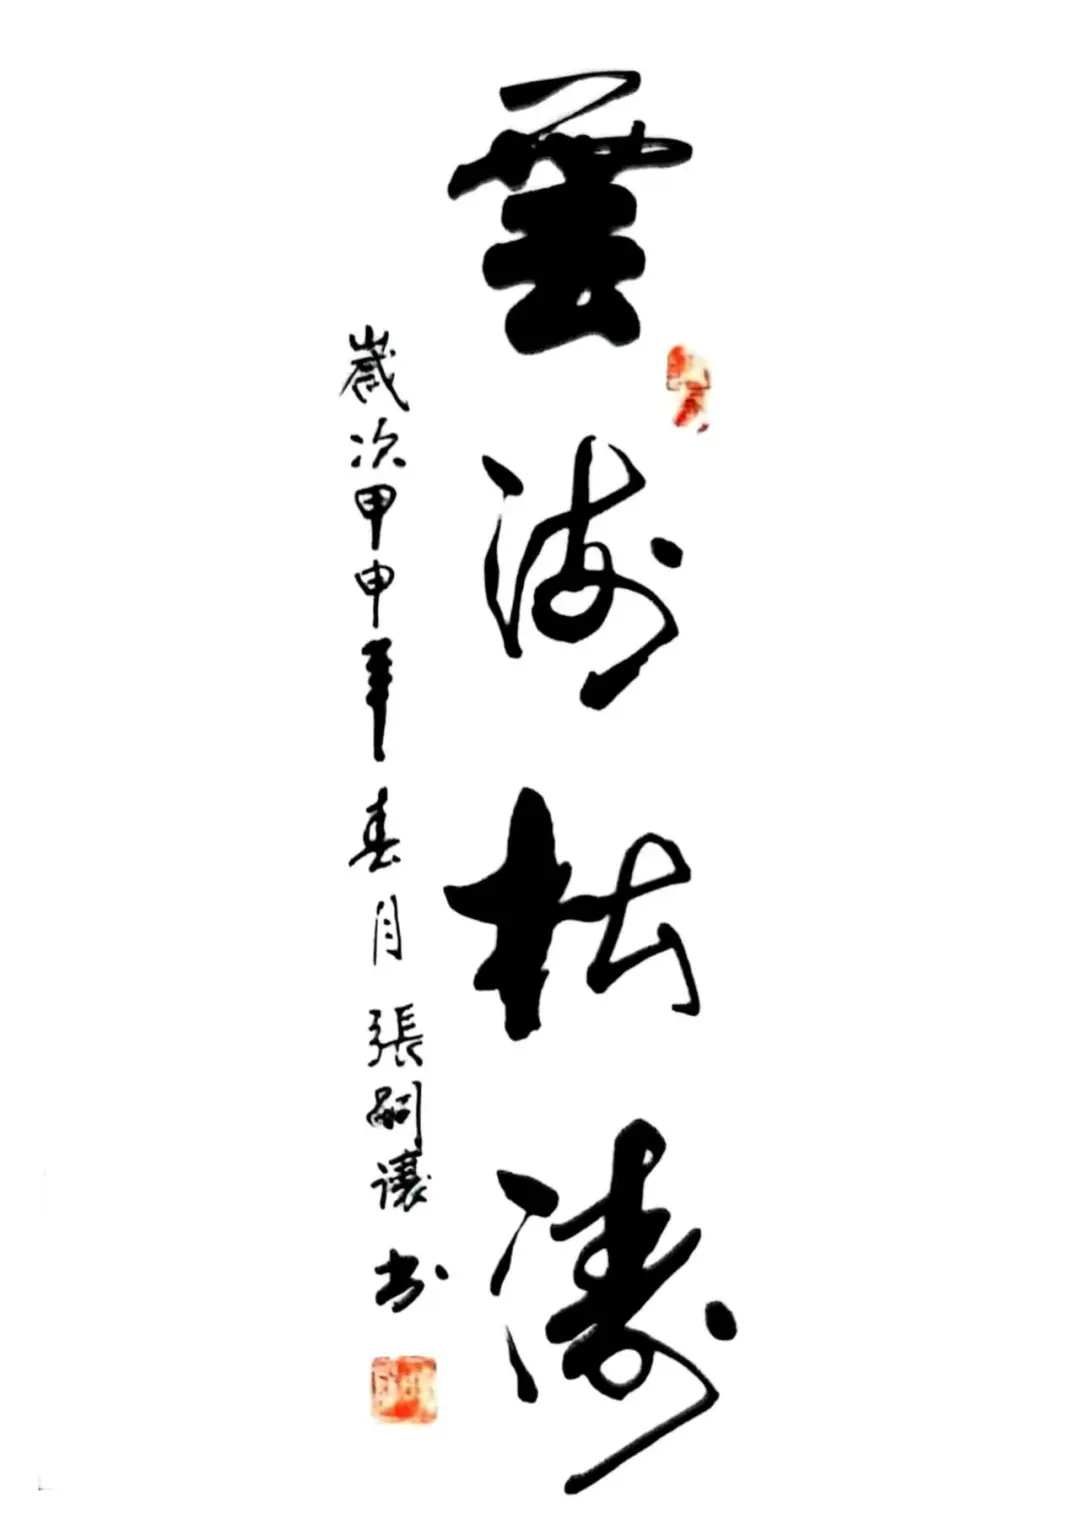 雲海松濤
歲次甲申年春月張嗣讓书